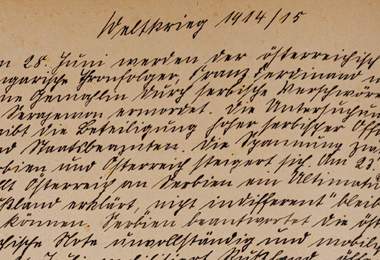 Weltkrieg 1914/15
m 28. Juni werden der österreichisch
ngarische Thronfolger, Franz Ferdinand u
ne Gemahlin durch serbische Verschwöre
Serajewo ermordet. Die Untersuchun
gibt die Beteiligung hoher serbischer Offi
nd Staatsbeamten. Die Spannung zwi
rbien und Österreich steigert sich. Am 23.
llt Österreich an Serbien ein Ultimatu
ßland erklärt, nicht „indifferent" bleib
können. Serbien beantwortet die öst
chische Note unvollständig und mobil
Juli mobilisiert Rußland